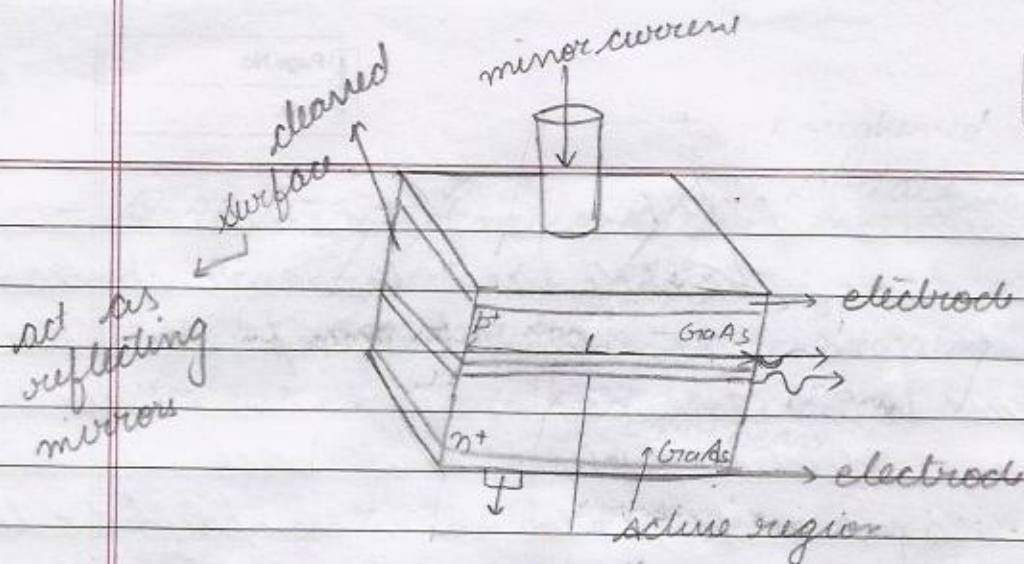 minor current
cleaved
surface
act as
reflecting
mirrors
electrod
p+
GaAs
L
n+
GaAs
electrod
active region